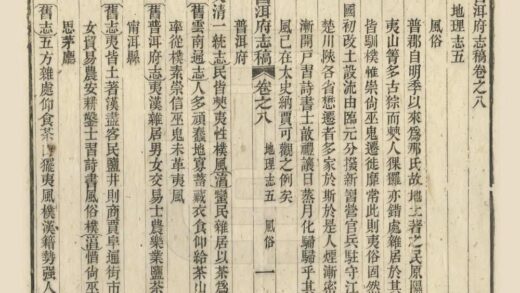 普洱府志稿卷之八
地理志五
風俗
普郡自明季以來為那氏故地土著之民原隰
夷山箐多古猔而僰人猓玀亦錯處雜居於其
皆馴樸惟崇尙巫鬼遷徙靡常此則夷俗固然
國初改土設流由臨元分撥新嶍營官兵駐守江
楚川陝各省懋遷者多家於斯於是人煙漸密
漸開戸習詩書士敦禮讓日蒸月化駸駸乎其
風已在太史納賈可觀之例矣
普洱府志稿 卷之八 地理志五 風俗 一
普洱府
清一統志民皆僰夷性樸風淸蠻民雜居以茶為
舊雲南通志人多頑蠢地寡蓄藏衣食仰給茶山
舊普洱府志夷漢雜居男女交易士農樂業鹽茶
率從樸素崇信巫鬼未革夷風
甯洱縣
舊志夷皆土著漢盡客民鹽井則商賈阜通街市
女貿易農安耕鑿士習詩書風俗樸湻惜尙巫
思茅廳
舊志五方雜處仰食茶 擺夷風樸漢籍勢強人